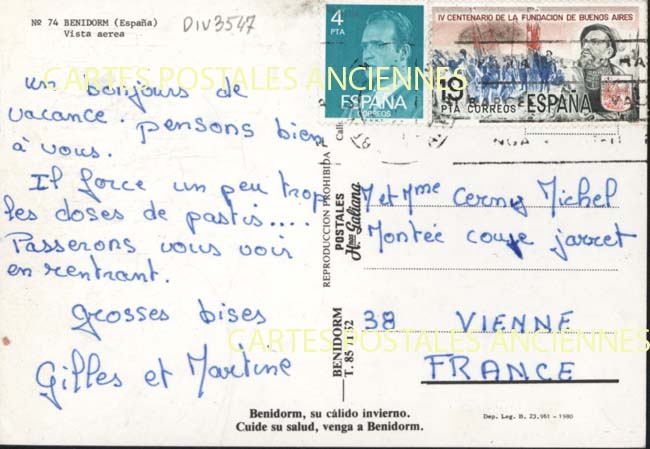 Nº 74 BENIDORM (España)
Vista aerea
DIV3547
4
PTA
ESPAÑA
CORREOS
IV CENTENARIO DE LA FUNDACION DE BUENOS AIRES
19
PTA CORREOS ESPAÑA
CARTES POSTALES ANCIENNES
un bonjours de
vacance. pensons bien
à vous.
Il force un peu trop
les doses de pastis....
Passerons vous voir
en rentrant.
grosses bises
Gilles et Martine
REPRODUCCION PROHIBIDA
POSTALES
Hnos. Galiana
BENIDORM
T. 85 71 52
M et Mme Cerny Michel
Montée coupe jarret
38 VIENNE
FRANCE
CARTES POSTALES ANCIENNES
Benidorm, su cálido invierno.
Cuide su salud, venga a Benidorm.
Dep. Leg. B. 23.961 - 1980